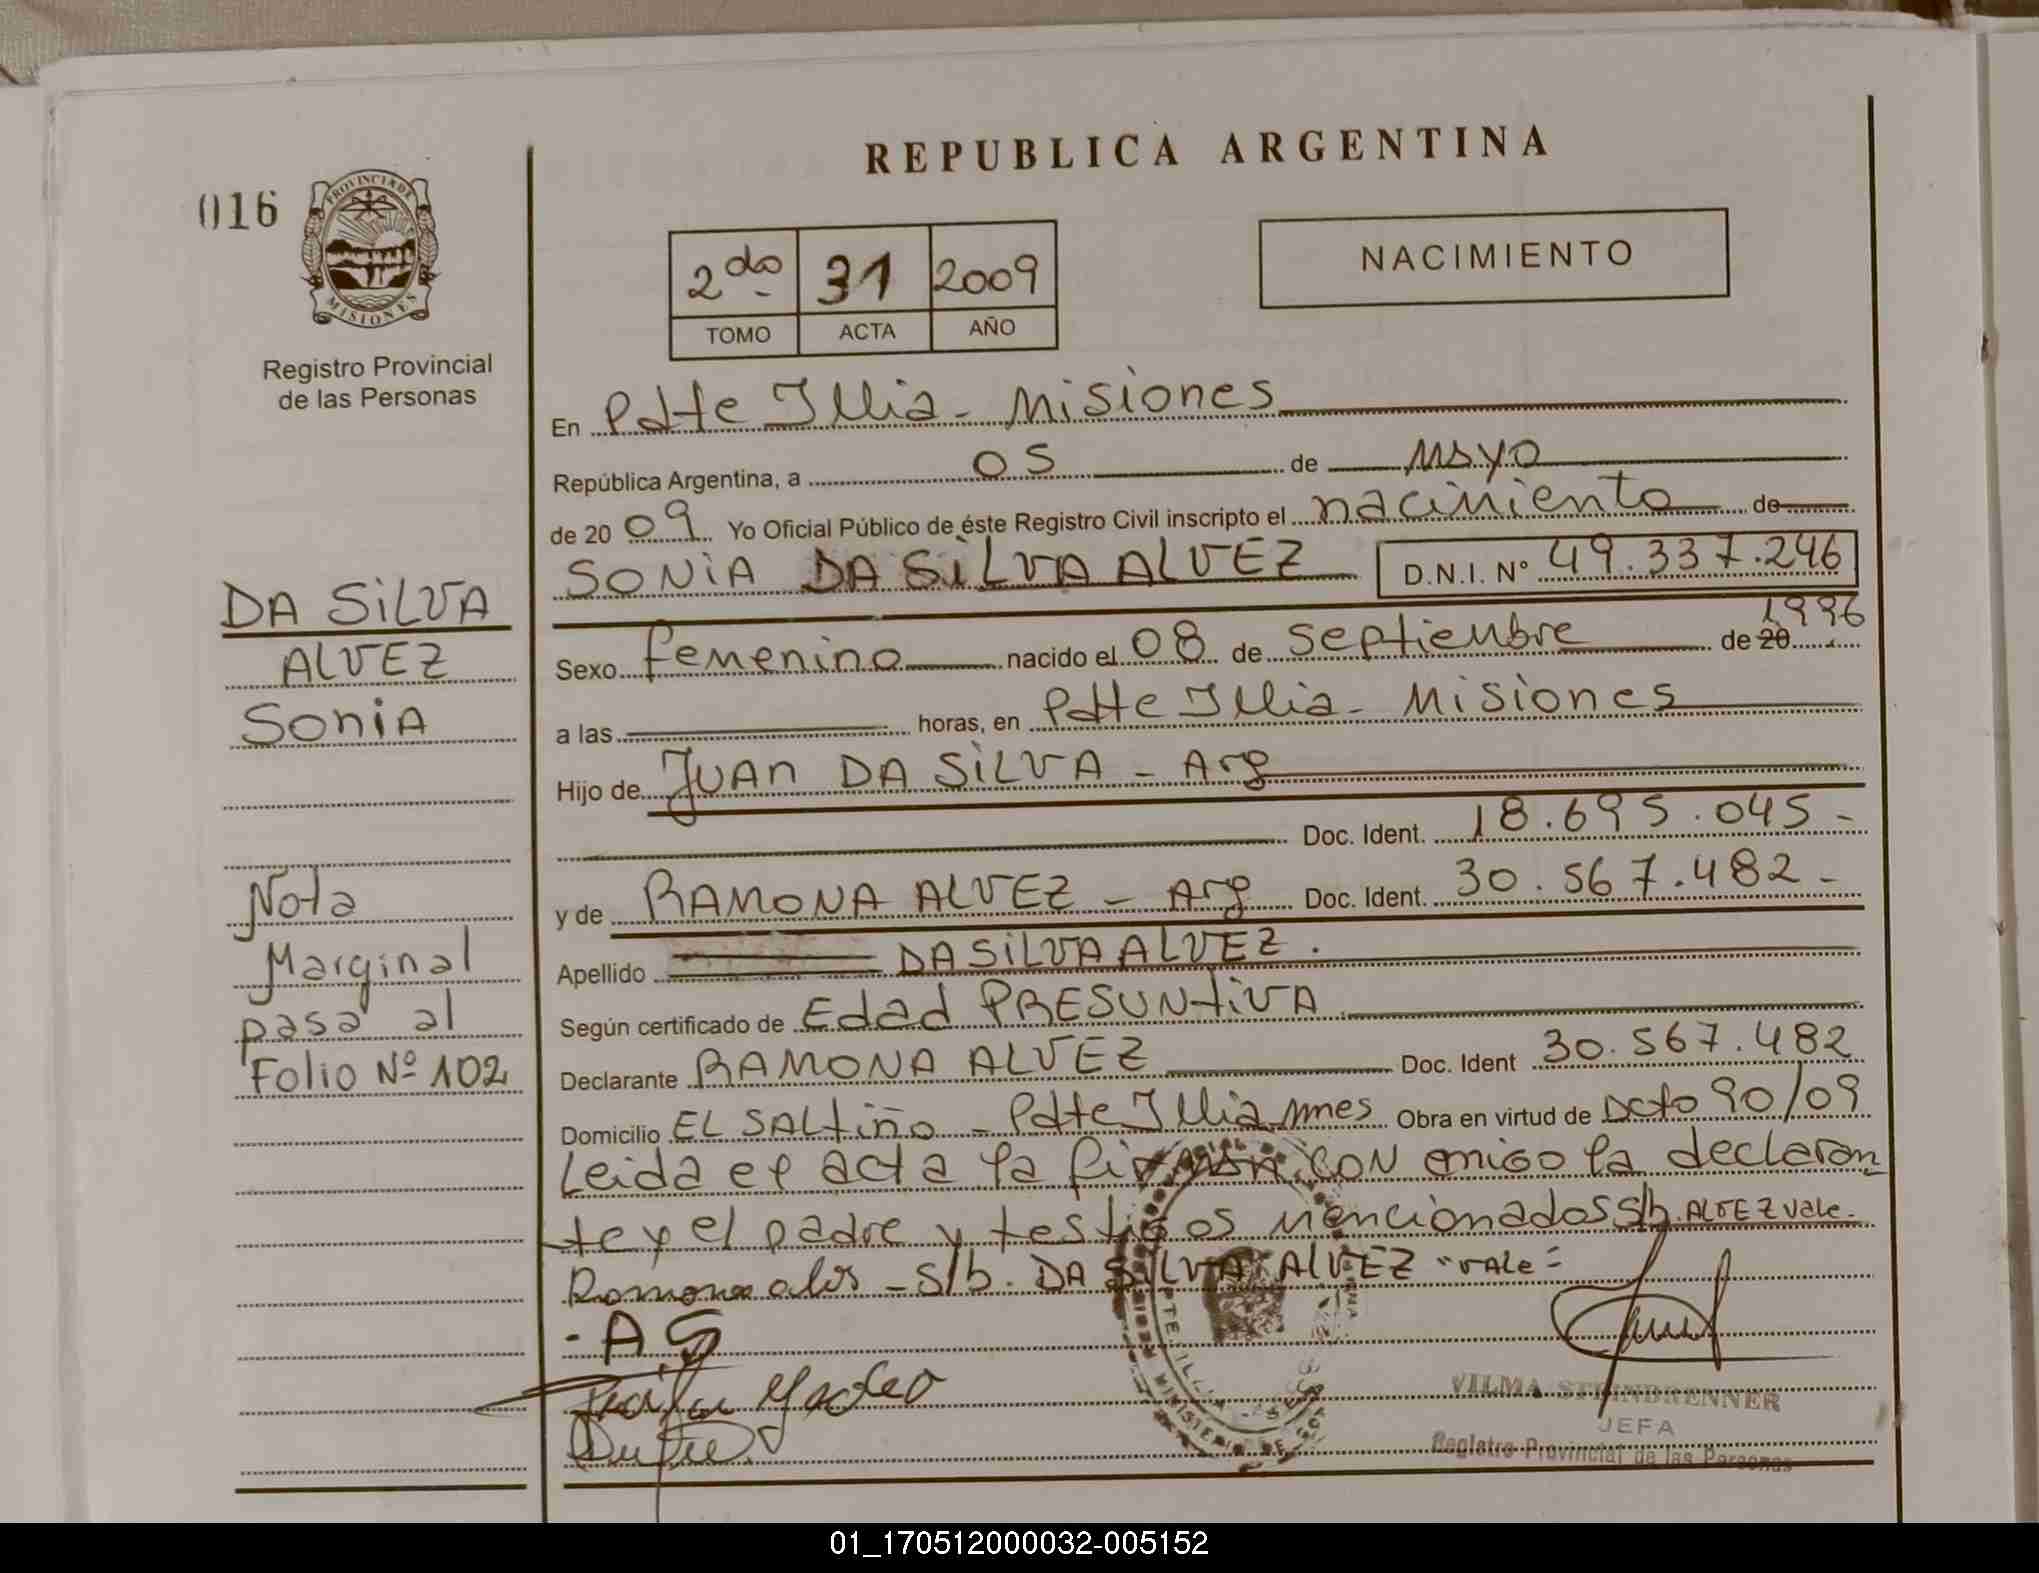 REPUBLICA ARGENTINA
016
PROVINCIA DE
MISIONES
Registro Provincial
de las Personas
2do 31 2009
TOMO ACTA AÑO
NACIMIENTO
En Pdte Illia - Misiones
República Argentina, a 05 de Mayo
de 20 09 Yo Oficial Público de éste Registro Civil inscripto el nacimiento de
SONIA DA SILVA ALVEZ D.N.I. N° 49.337.246
Sexo femenino nacido el 08 de septiembre de 20 1996
a las horas, en Pdte Illia - Misiones
Hijo de JUAN DA SILVA - Arg
Doc. Ident. 18.695.045 -
y de RAMONA ALVEZ - Arg Doc. Ident. 30.567.482 -
Apellido DA SILVA ALVEZ.
Según certificado de Edad PRESUNtiVA
Declarante RAMONA ALVEZ Doc. Ident 30.567.482
Domicilio EL SALtiño - Pdte Illia mnes Obra en virtud de Dcto 90/09
Leida el acta la firman CON migo la declaran
te y el padre y testigos mencionados s/b. ALVEZ vale.
s/b. DA SILVA ALVEZ "VALE"
DA SILVA
ALVEZ
SoniA
Nota
Marginal
pasa al
Folio Nº 102
- A.S
VILMA STEINBRENNER
JEFA
Registro Provincial de las Personas
MINISTERIO DE
01_170512000032-005152